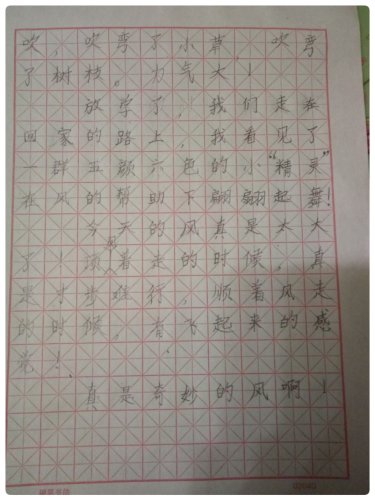 吹，吹弯了小草，吹弯
了树枝。力气大！
放学了，我们走在
回家的路上，我看见了
一群五颜六色的小“精灵”
在风的帮助下翩翩起舞！
今天的风真是太大
了！顶风着走的时候，真
是寸步难行，顺着风走
的时候，有飞起来的感
觉！
真是奇妙的风啊！